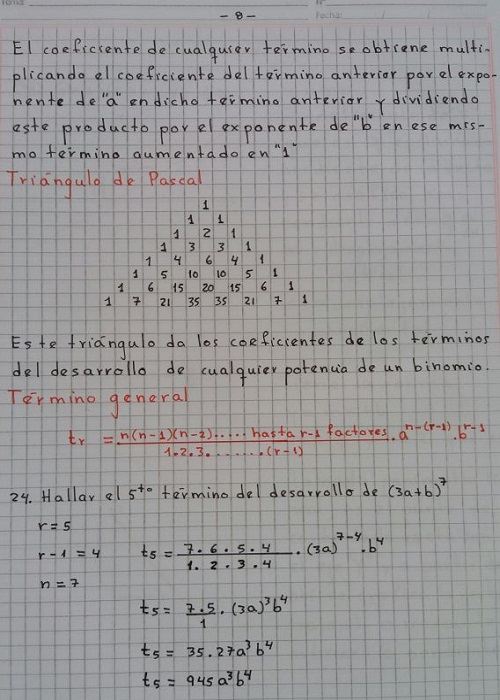 - 8 -
Fecha:
El coeficiente de cualquier término se obtiene multi-
plicando el coeficiente del término anterior por el expo-
nente de "a" en dicho término anterior y dividiendo
este producto por el exponente de "b" en ese mis-
mo término aumentado en "1"
Triángulo de Pascal
1
1 1
1 2 1
1 3 3 1
1 4 6 4 1
1 5 10 10 5 1
1 6 15 20 15 6 1
1 7 21 35 35 21 7 1
Este triángulo da los coeficientes de los términos
del desarrollo de cualquier potencia de un binomio.
Término general
tr = n(n-1)(n-2)..... hasta r-1 factores / 1.2.3........(r-1) . a^n-(r-1) . b^r-1
24. Hallar el 5to término del desarrollo de (3a+b)^7
r = 5
r-1 = 4
n = 7
t5 = 7.6.5.4 / 1.2.3.4 . (3a)^7-4 . b^4
t5 = 7.5 / 1 . (3a)^3 b^4
t5 = 35.27a^3 b^4
t5 = 945a^3 b^4